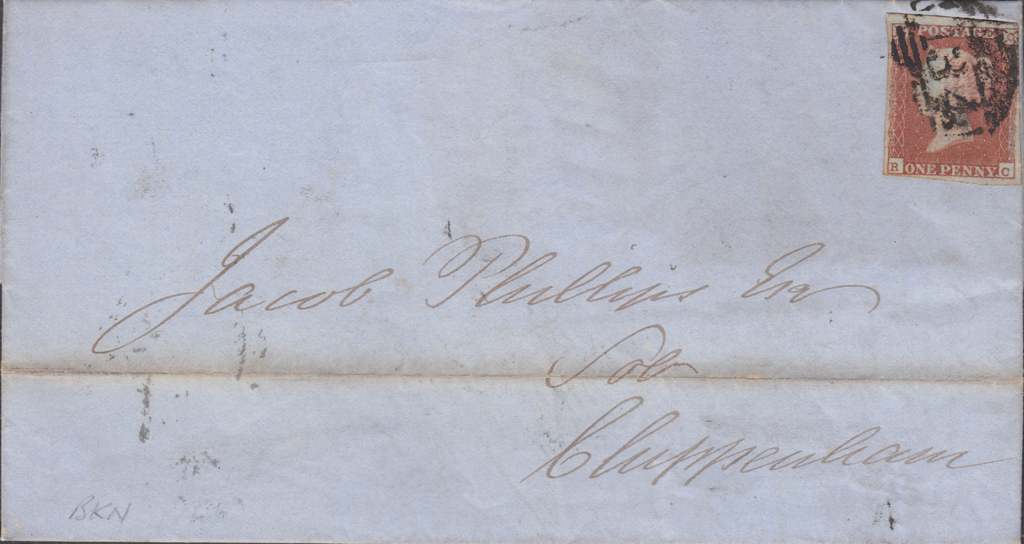 POSTAGE
R ONE PENNY C
Jacob Phillips Esq
Sol
Chippenham
BKN